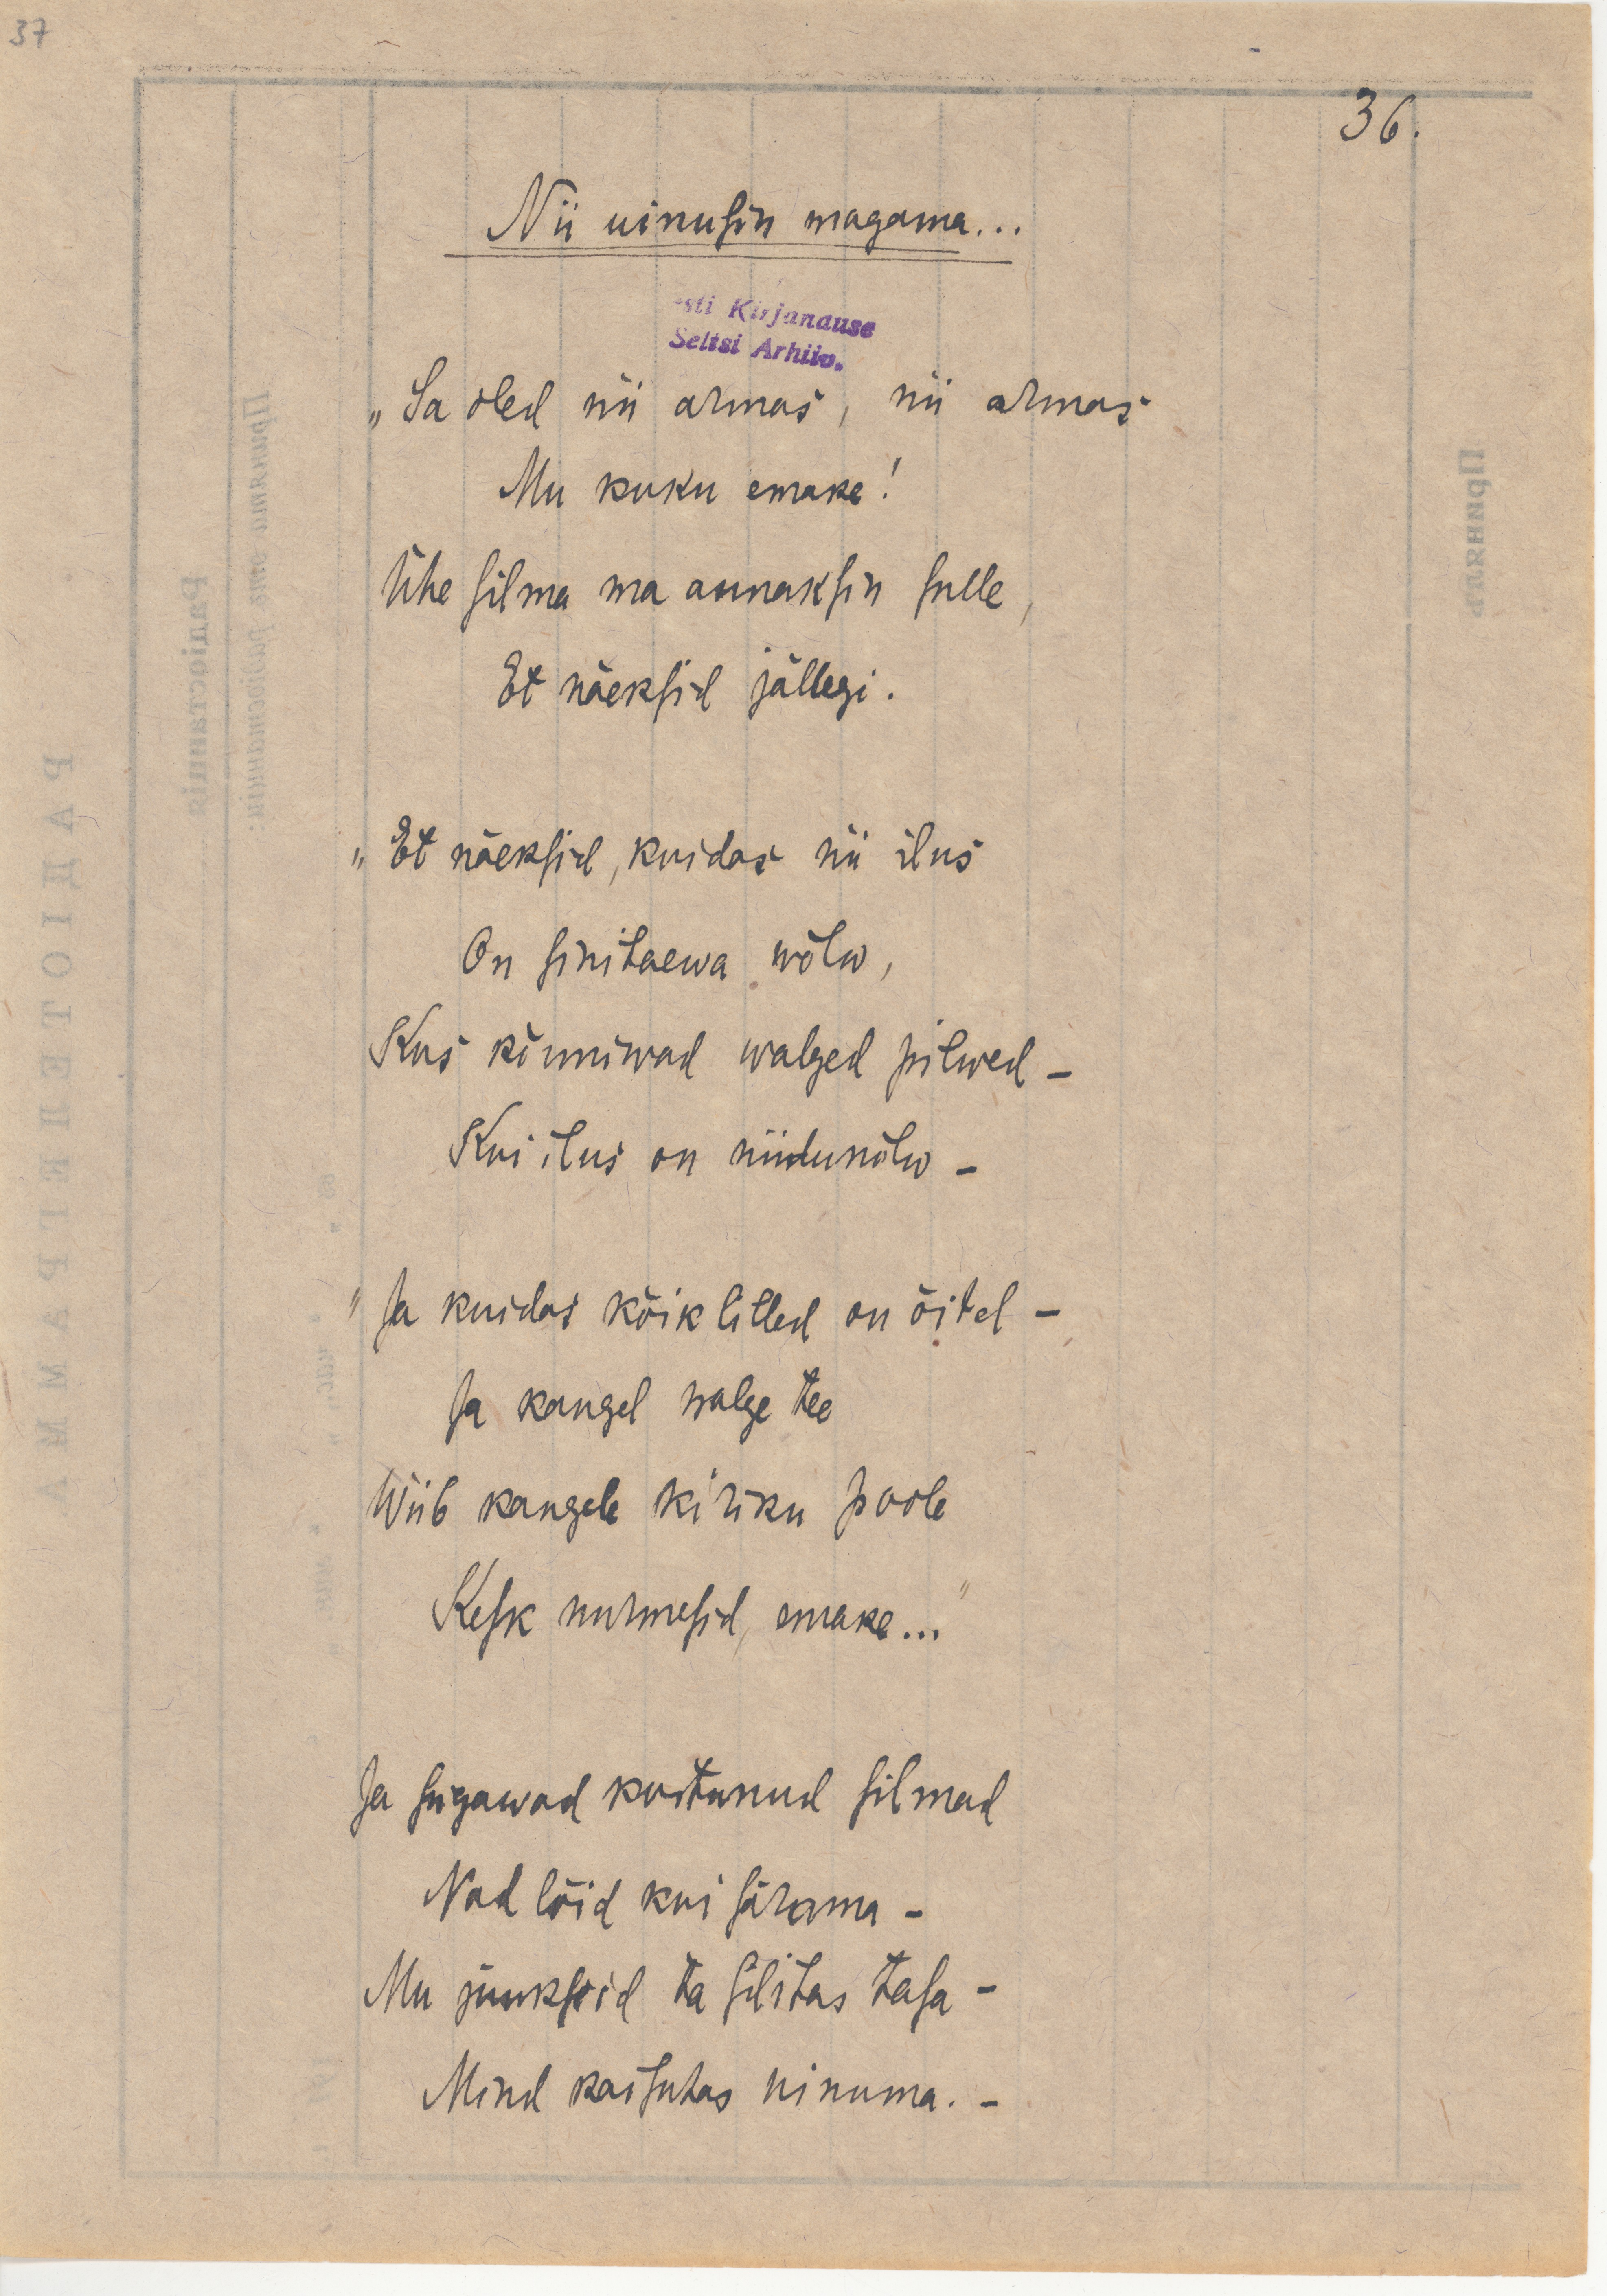 37
36.
Nii uinusin magama...
esti Kirjanduse
Seltsi Arhiiv.
„Sa oled nii armas, nii armas
Mu kuku emake!
Ühe silma ma annaksin sulle,
Et näeksid jällegi.
„Et näeksid, kuidas nii ilus
On sinitaewa wõlw,
Kus kõnniwad walged pilwed –
Kui ilus on niidunõlw –
"Ja kuidas kõik lilled on õitel –
Ja kaugel walge tee
Wiib kaugele kiriku poole
Kesk nurmesid, emake..."
Ja sügawad kustunud silmad
Nad lõid kui särama –
Mu juukseid ta silitas tasa –
Mind kaisutas uinuma. –
Радіостанція
РАДІОТЕЛЕГРАММА